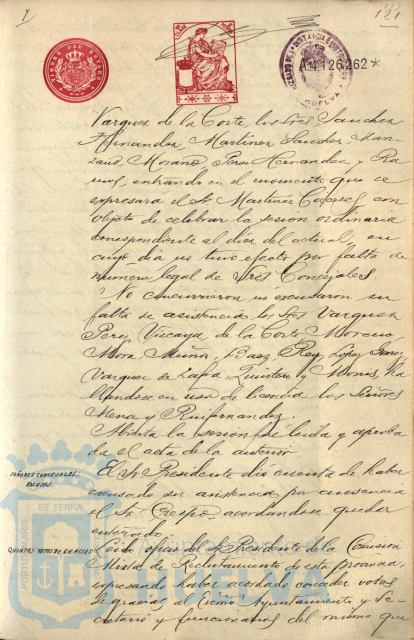 A.4.126.262*
Vazquez de la Corte, los Sres Sanchez
Hernandez, Martinez Sanchez, Man-
zano, Morano, Perez Hernandez y Ra-
mos, entrando en el momento que se
expresara el Sr Martinez con
objeto de celebrar la sesion ordinaria
correspondiente al dia del actual, en
cuyo dia no tuvo efecto por falta de
numero legal de Sres Concejales.
No concurrieron ni escusaron su
falta de asistencia los Sres Vazquez
Perez, Vizcaya, de la Corte, Moreno,
Mora, Muñoz, Baez, Rey, Lopez,
Vazquez de Zafra, Quintero y ha
llandose en uso de licencia los Señores
Mena y
Abierta la sesion fue leida y aproba
da el acta de la anterior.
SEÑORES CONCEJALES.
El Sr Presidente dio cuenta de haber
escusado su asistencia por ausencia
el Sr Crespo acordandose quedar
enterado.
QUINTAS. VOTOS DE GRACIAS
Leido oficio del Sr Presidente de la Comision
Mista de Reclutamiento de esta provincia,
expresando haber acordado conceder votos
de gracias al Excmo Ayuntamiento y Se-
cretario y funcionarios del mismo que